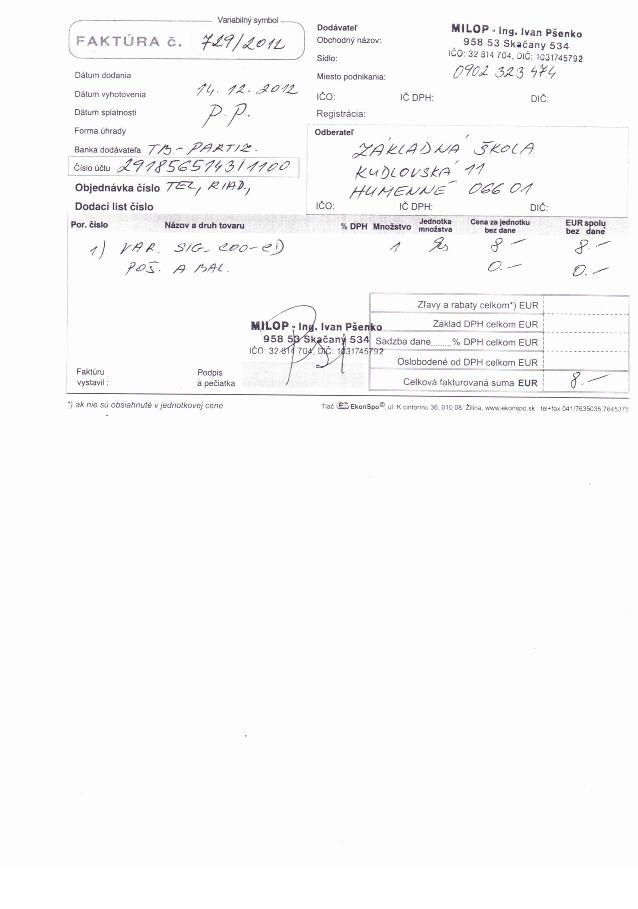 Variabilný symbol
FAKTÚRA č. 729/2012
Dátum dodania
Dátum vyhotovenia 14.12.2012
Dátum splatnosti P.P.
Forma úhrady
Banka dodávateľa TB-PARTIZ.
Číslo účtu 2918565143/1100
Objednávka číslo TEL, RIAD,
Dodací list číslo
Dodávateľ
Obchodný názov:
Sídlo:
Miesto podnikania:
MILOP - Ing. Ivan Pšenko
958 53 Skačany 534
IČO: 32 814 704, DIČ: 1031745792
0902 323 474
IČO: IČ DPH: DIČ:
Registrácia:
Odberateľ
ZÁKLADNÁ ŠKOLA
KUDLOVSKÁ 11
HUMENNÉ 066 01
IČO: IČ DPH: DIČ:
Por. číslo Názov a druh tovaru % DPH Množstvo Jednotka množstva Cena za jednotku bez dane EUR spolu bez dane
1) VAR. SIG-200-CD 1 8.- 8.-
POŠ. A BAL. 0.- 0.-
Zľavy a rabaty celkom*) EUR
Základ DPH celkom EUR
Sadzba dane......% DPH celkom EUR
Oslobodené od DPH celkom EUR
Celková fakturovaná suma EUR 8.-
MILOP - Ing. Ivan Pšenko
958 53 Skačany 534
IČO: 32 814 704, DIČ: 1031745792
Faktúru vystavil:
Podpis a pečiatka
*) ak nie sú obsiahnuté v jednotkovej cene
Tlač EkonSpo©, ul. K cintorínu 36, 010 08 Žilina, www.ekonspo.sk tel+fax 041/7635035, 7645375